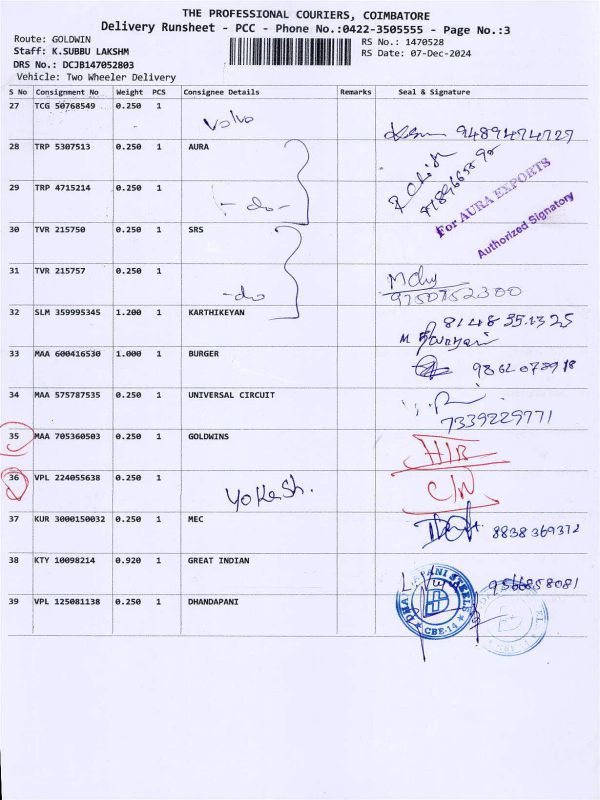 THE PROFESSIONAL COURIERS, COIMBATORE
Delivery Runsheet - PCC - Phone No.:0422-3505555 - Page No.:3
Route: GOLDWIN
RS No.: 1470528
Staff: K.SUBBU LAKSHM
RS Date: 07-Dec-2024
DRS No.: DCJB147052803
Vehicle: Two Wheeler Delivery
S No Consignment No Weight PCS Consignee Details Remarks Seal & Signature
27 TCG 50768549 0.250 1 Volvo 9489474729
28 TRP 5307513 0.250 1 AURA
29 TRP 4715214 0.250 1 -do-
For AURA EXPORTS
Authorized Signatory
30 TVR 215750 0.250 1 SRS
31 TVR 215757 0.250 1 -do 9750752300
32 SLM 359995345 1.200 1 KARTHIKEYAN
33 MAA 600416530 1.000 1 BURGER
34 MAA 575787535 0.250 1 UNIVERSAL CIRCUIT 7339229771
35 MAA 705360503 0.250 1 GOLDWINS
36 VPL 224055638 0.250 1 Yokesh. C/N
37 KUR 3000150032 0.250 1 MEC 8838369372
38 KTY 10098214 0.920 1 GREAT INDIAN 9566858081
39 VPL 125081138 0.250 1 DHANDAPANI
CBE-14